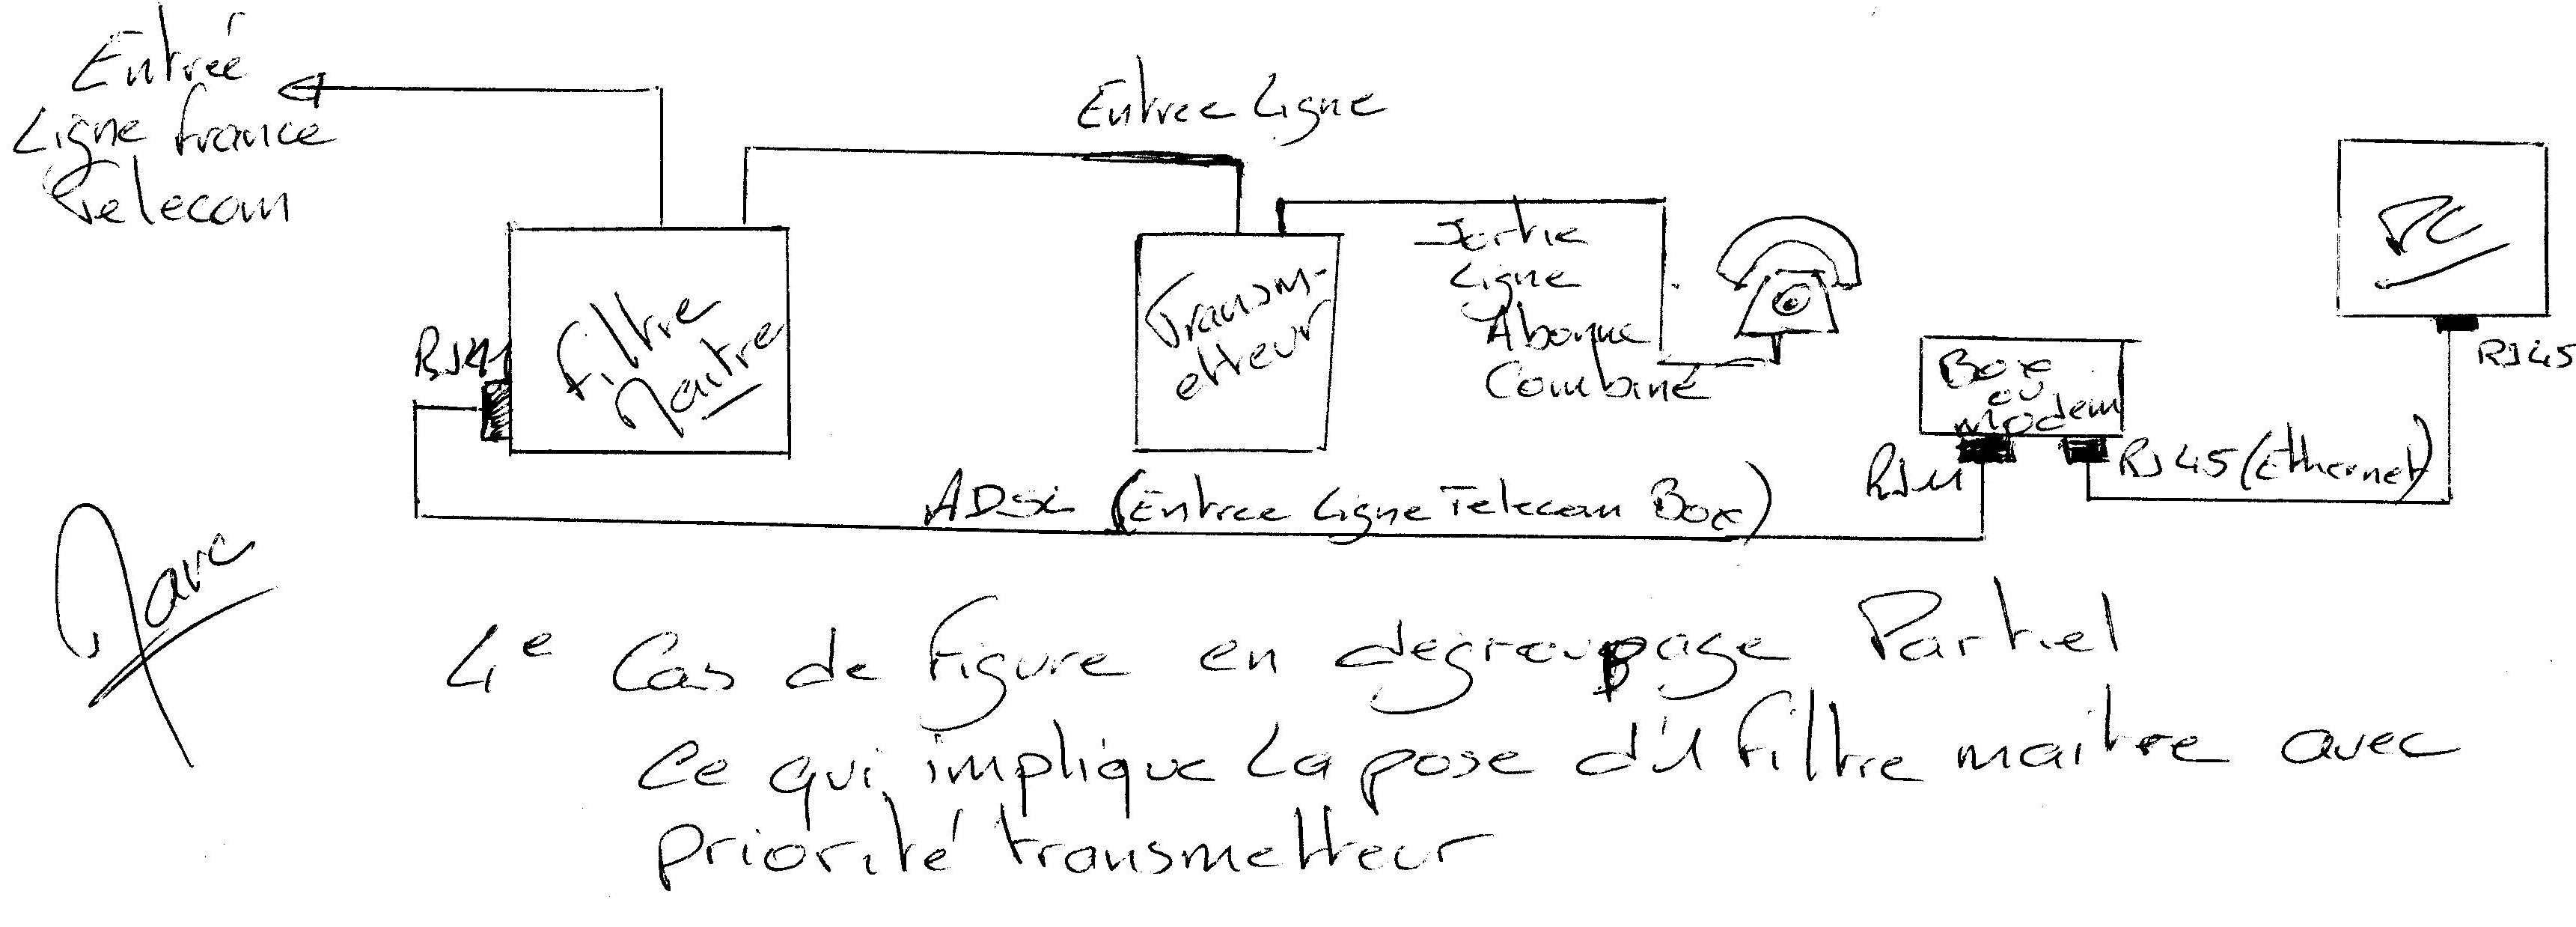 Entrée
Ligne france
Telecom
Entree Ligne
RJ11
Filtre
Maitre
Transm-
etteur
Sortie
Ligne
Abonne
Combiné
PC
RJ45
Box
ou
modem
RJ11
RJ45 (Ethernet)
ADSL (Entree Ligne Telecom Box)
Marc
4e Cas de figure en degroupage Partiel
Ce qui implique La pose d'1 filtre maitre avec
priorité transmetteur